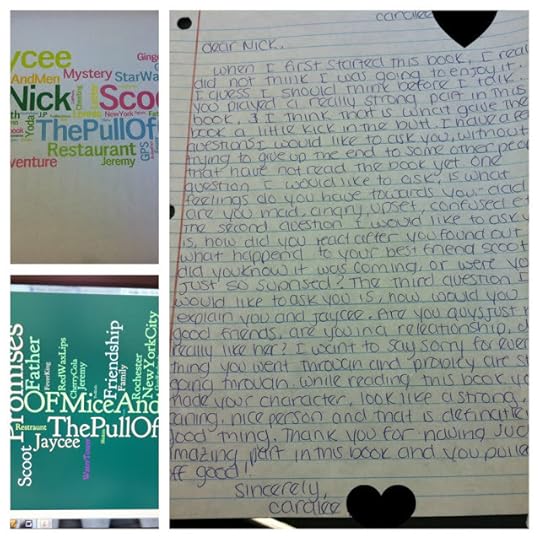 ycee
Ginge
AndMen
Mystery
StarWa
Nick
Scoo
NewYork
Yoda
ThePullOf
GPS
Restaurant
Jeremy
venture
Promises
Father
RedWaxLips
CherryCola
Jeremy
Friendship
Family
Rochester
NewYorkCity
OFMiceAnd
Restraunt
ThePullOf
Scoot
Jaycee
WaterTower
caralee
dear Nick,
when I first started this book, I real
did not think I was going to enjoy it.
I guess I should think before I talk.
you played a really strong part in this
book, & I think that is what gave the
book a little kick in the butt. I have a few
questions I would like to ask you, without
trying to give up the end to some other peop
that have not read the book yet. one
question I would like to ask, is what
feelings do you have towards your dad
are you mad, angry, upset, confused e
The second question I would like to ask y
is, how did you react after you found out
what happend to your best friend scoot
did you know it was coming, or were yo
just so suprised? The third question I
would like to ask you is, how would you
explain you and jaycee. Are you guys just r
good friends, are you in a releationship, d
really like her? I want to say sorry for ever
thing you went through and probley are st
going through. while reading this book, jo
made your character, look like a strong,
caring, nice person and that is definate
good thing. Thank you for having suc
amazing part in this book and you pulle
off good!
Sincerely,
caralee